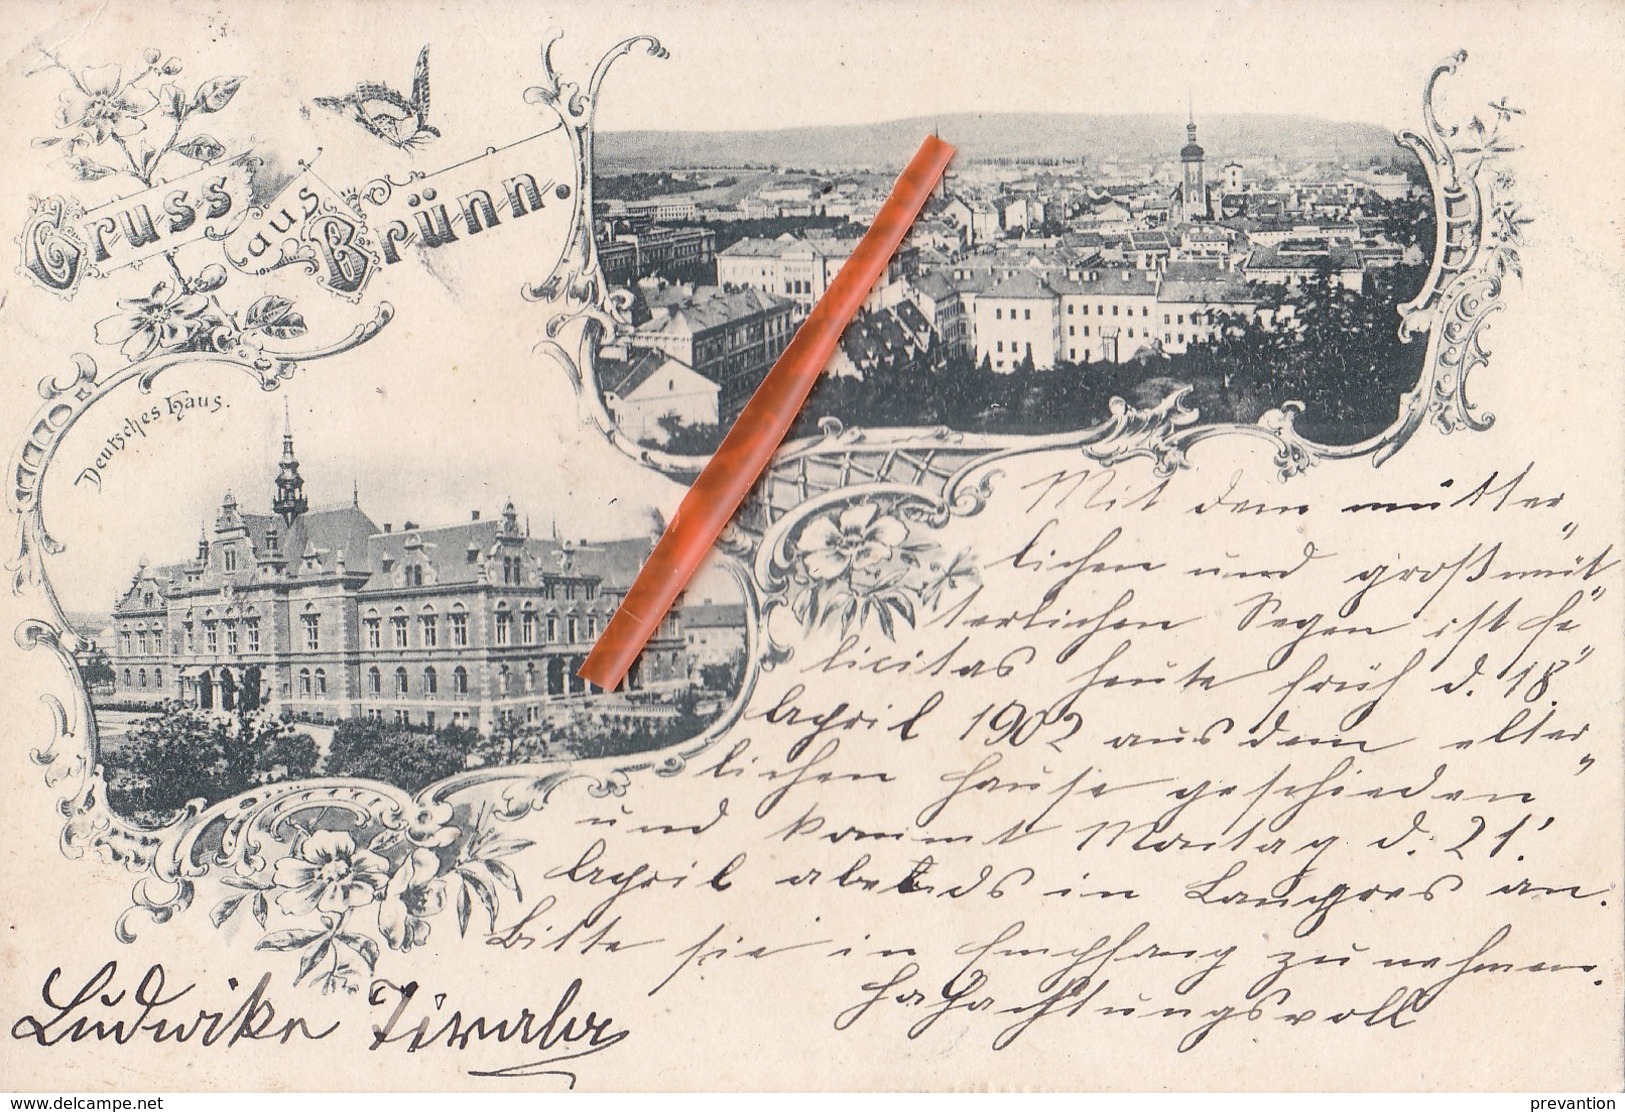 Gruss aus Brünn.
Deutsches Haus.
Mit dem mütter„
lichen und großmüt„
terlichen Segen ist Fe„
licitas heute früh d. 18.
April 1902 aus dem elter„
lichen Hause geschieden
und kommt Montag d. 21.
April abends in Langres an.
Bitte sie in Empfang zu nehmen.
Hochachtungsvoll
Ludwike
delcampe.net
prevantion